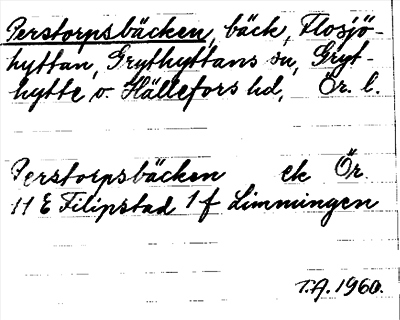 Perstorpsbäcken, bäck, Flosjö-
hyttan, Grythyttans sn, Gryt-
hytte o. Hällefors hd, Ör. l.
Perstorpsbäcken ek Ör.
11 E Filipstad 1 f Limmingen
T.A. 1960.